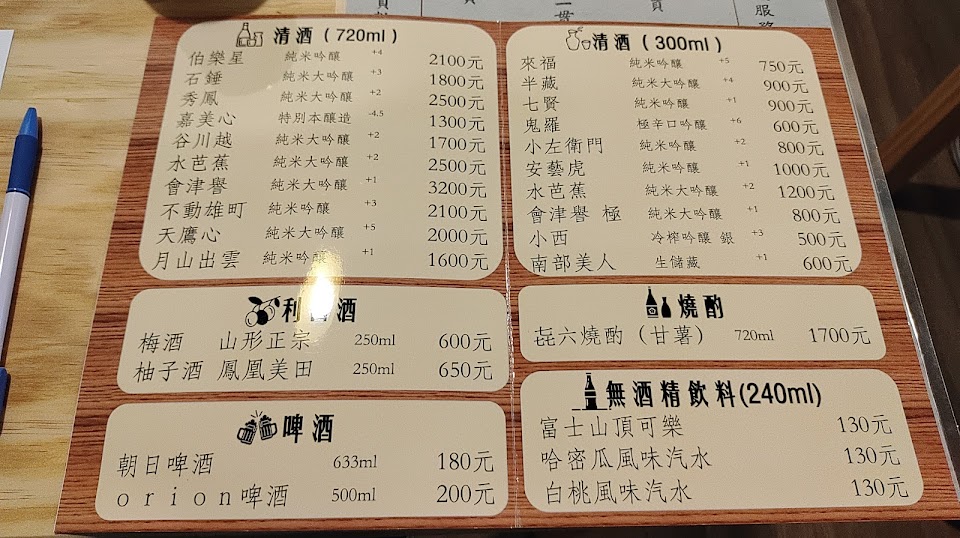 清酒（720ml）
伯樂星 純米吟釀 +4 2100元
石錘 純米大吟釀 +3 1800元
秀鳳 純米大吟釀 +2 2500元
嘉美心 特別本釀造 -4.5 1300元
谷川越 純米大吟釀 +2 1700元
水芭蕉 純米大吟釀 +2 2500元
會津譽 純米大吟釀 +1 3200元
不動雄町 純米吟釀 +3 2100元
天鷹心 純米大吟釀 +5 2000元
月山出雲 純米吟釀 +1 1600元
利口酒
梅酒 山形正宗 250ml 600元
柚子酒 鳳凰美田 250ml 650元
啤酒
朝日啤酒 633ml 180元
orion啤酒 500ml 200元
清酒（300ml）
來福 純米吟釀 +5 750元
半藏 純米大吟釀 +4 900元
七賢 純米吟釀 +1 900元
鬼羅 極辛口吟釀 +6 600元
小左衛門 純米吟釀 +2 800元
安藝虎 純米吟釀 +1 1000元
水芭蕉 純米大吟釀 +2 1200元
會津譽 極 純米大吟釀 +1 800元
小西 冷榨吟釀 銀 +3 500元
南部美人 生儲藏 +1 600元
燒酌
㐂六燒酌（甘薯） 720ml 1700元
無酒精飲料(240ml)
富士山頂可樂 130元
哈密瓜風味汽水 130元
白桃風味汽水 130元
一貫
貢
服務